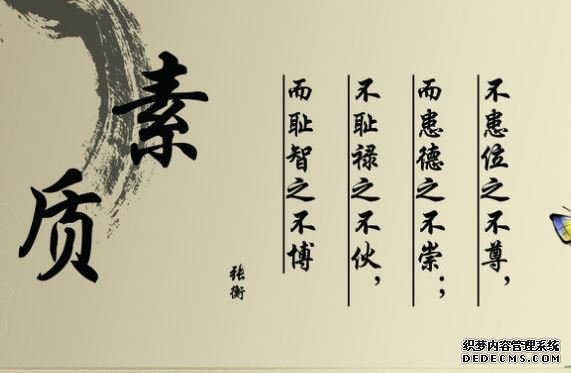 素质
不患位之不尊，
而患德之不崇；
不耻禄之不伙，
而耻智之不博
张衡
织梦内容管理系统
DEDECMS.COM